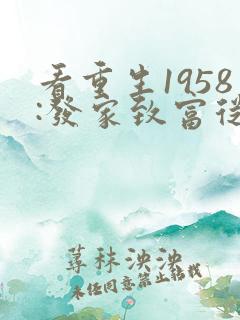 看重生1958
:發家致富從
蓴秣泱泱
未经同意禁止转载